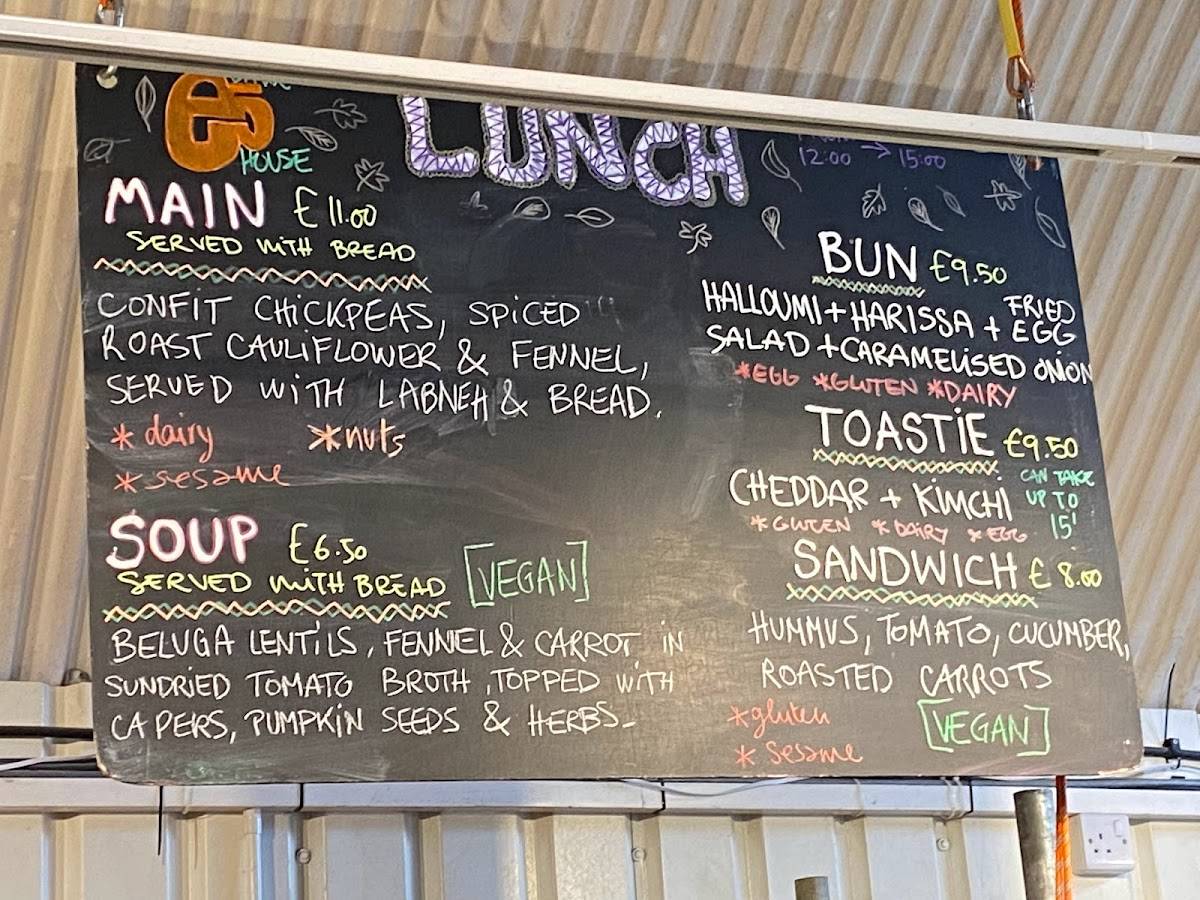 e5
HOUSE
LUNCH
12:00 → 15:00
MAIN £11.00
SERVED WITH BREAD
CONFIT CHICKPEAS, SPICED
ROAST CAULIFLOWER & FENNEL,
SERVED WITH LABNEH & BREAD.
* dairy *nuts
* sesame
SOUP £6.50
SERVED WITH BREAD [VEGAN]
BELUGA LENTILS, FENNEL & CARROT IN
SUNDRIED TOMATO BROTH, TOPPED WITH
CAPERS, PUMPKIN SEEDS & HERBS-
BUN £9.50
HALLOUMI + HARISSA + FRIED EGG
SALAD + CARAMELISED ONION
*EGG *GLUTEN *DAIRY
TOASTIE £9.50
CHEDDAR + KIMCHI
CAN TAKE
UP TO
15'
* GLUTEN * DAIRY * EGG
SANDWICH £8.00
HUMMUS, TOMATO, CUCUMBER,
ROASTED CARROTS
*gluten
* sesame
[VEGAN]